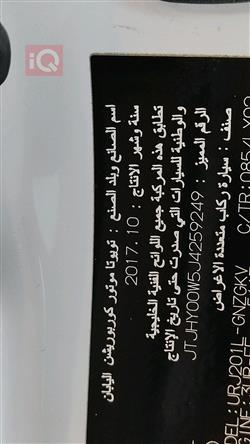 iQ
اسم الصانع وبلد الصنع : تويوتا موتور كوربوريشن اليابان
سنة وشهر الانتاج : 2017.10
تطابق هذه المركبة جميع اللوائح الفنية الخليجية
والوطنية للسيارات التي صدرت حتى تاريخ الإنتاج
الرقم المميز : JTJHY00W5J4259249
صنف : سيارة ركاب متعددة الاغراض
URJ201L-GNZGKV